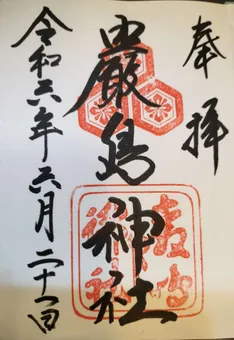 奉拝
嚴島神社
令和六年六月二十一日